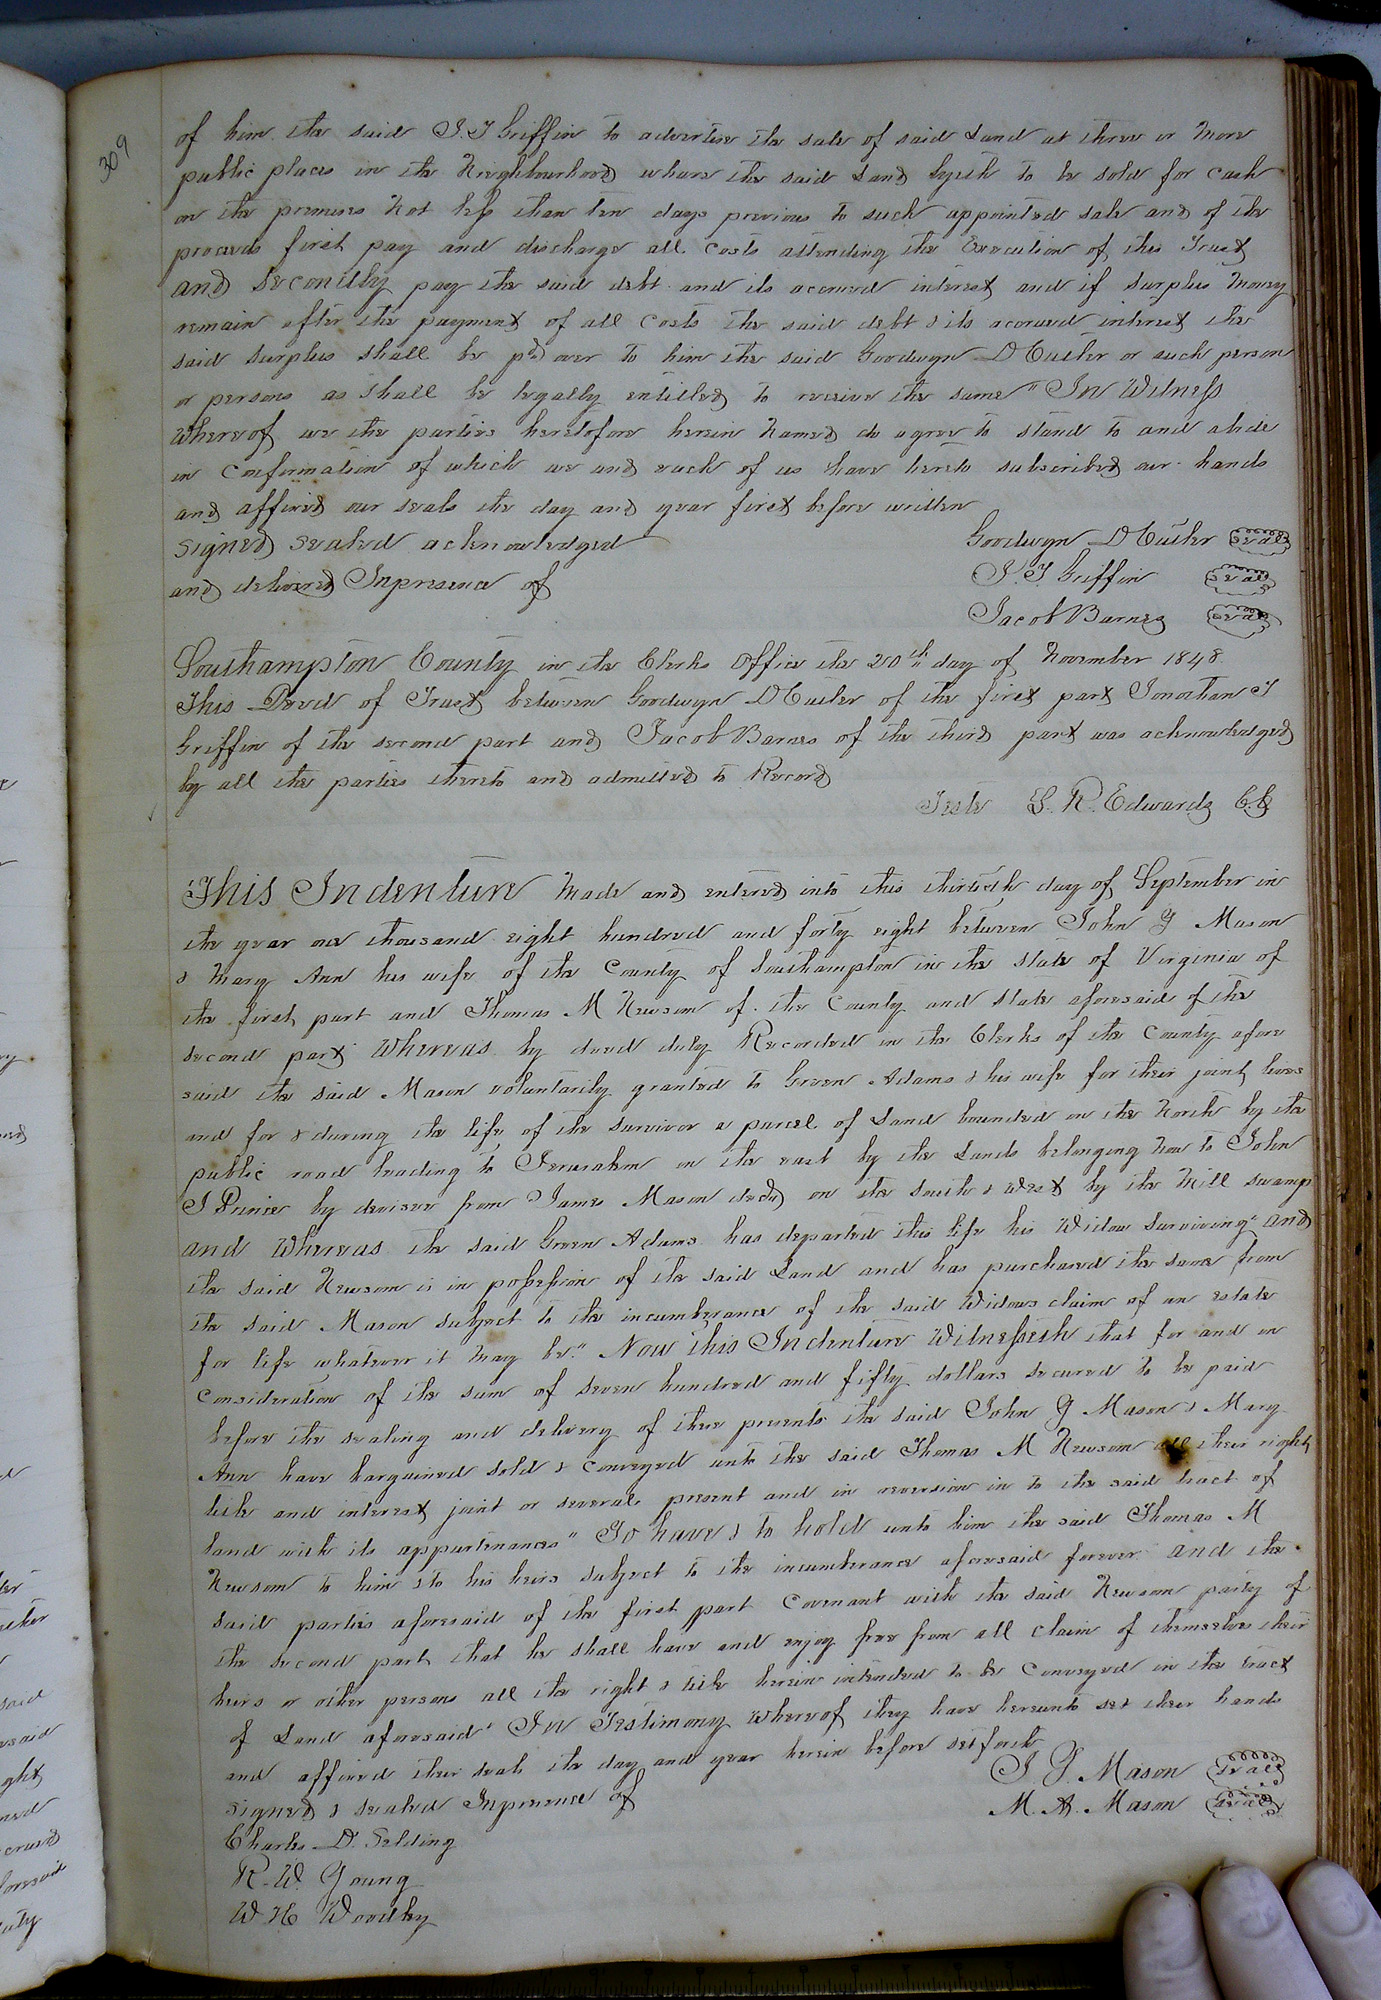 309
of him the said J. T Griffin to advertise the sale of said Land at three or more
public places in the Neighbourhood where the said Land lyeth to be sold for cash
on the premises not less than ten days previous to such appointed sale and of the
proceeds first pay and discharge all costs attending the Execution of this Trust
and Secondly pay the said debt and its accrued interest and if surplus money
remain after the payment of all costs the said debt & its accrued interest the
said surplus shall be pd over to him the said Goodwyn D Cutler or such person
or persons as shall be legally entitled to receive the same" In Witness
whereof we the parties heretofore herein named do agree to stand to and abide
in confirmation of which we and each of us have hereto subscribed our hands
and affixed our seals the day and year first before written
Signed sealed acknowledged Goodwyn D Cutler seal
and delivered In presence of J. T Griffin seal
Jacob Barnes seal
Southampton County in the Clerks Office the 20th day of November 1848
This Deed of Trust between Goodwyn D Cutler of the first part Jonathan T
Griffin of the second part and Jacob Barnes of the third part was acknowledged
by all the parties thereto and admitted to Record
Teste L. R. Edwards C.C
This Indenture made and entered into this thirtieth day of September in
the year one thousand eight hundred and forty eight between John Y Mason
& Mary Ann his wife of the County of Southampton in the State of Virginia of
the first part and Thomas M Newsom of the County and State aforesaid of the
second part Whereas by deed duly Recorded in the Clerks of the County afore
said the said Mason voluntarily granted to Green Adams & his wife for their joint lives
and for & during the life of the survivor a parcel of Land bounded on the North by the
public road leading to Jerusalem on the east by the Lands belonging now to John
J Prince by devisee from James Mason decd on the South & West by the Mill swamp
and Whereas the said Green Adams has departed this life his Widow Surviving" and
the said Newsom is in possession of the said Land and has purchased the same from
the said Mason subject to the incumberance of the said Widows claim of an estate
for life whatever it may be" Now this Indenture Witnesseth that for and in
consideration of the sum of seven hundred and fifty dollars secured to be paid
before the sealing and delivery of these presents the said John Y Mason & Mary
Ann have bargained sold & conveyed unto the said Thomas M Newsom all their right
title and interest joint or several present and in reversion in to the said tract of
Land with its appurtenances" To have & to hold unto him the said Thomas M
Newsom to him & to his heirs subject to the incumberance aforesaid forever and the
said parties aforesaid of the first part Covenant with the said Newsom party of
the second part that he shall have and enjoy free from all claim of themselves their
heirs or other persons all the right & title herein intended to be Conveyed in the tract
of Land aforesaid" In Testimony whereof they have hereunto set their hands
and affixed their seals the day and year herein before set forth
Signed & sealed In presence of J. Y. Mason seal
M. A. Mason seal
Charles D.
R. W. Young
W. H Woodley